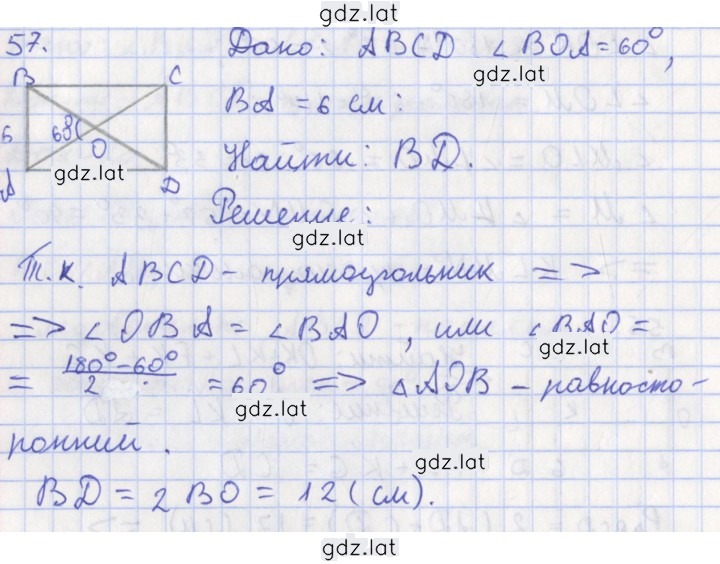 gdz.lat
57.
Дано: ABCD ∠BOA=60°,
gdz.lat
B C
BA = 6 см:
6 60°
O
Найти: BD.
gdz.lat
A D
Решение:
gdz.lat
Т.к. ABCD - прямоугольник =>
=> ∠OBA = ∠BAO, или ∠BAO =
gdz.lat
= (180°-60°)/2 = 60° => △AOB - равносто-
gdz.lat
ронний.
gdz.lat
BD = 2 BO = 12 (см).
gdz.lat